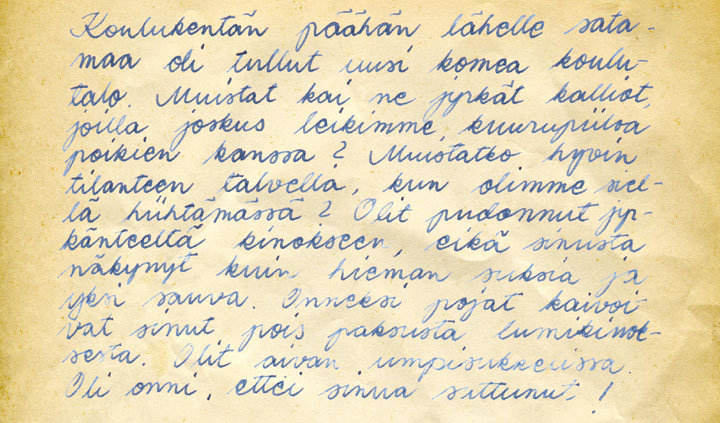 Koulukentän päähän lähelle sata-
maa oli tullut uusi komea koulu-
talo. Muistat kai ne jyrkät kalliot,
joilla joskus leikimme kuurupiiloa
poikien kanssa? Muistatko hyvin
tilanteen talvella, kun olimme siel-
lä hiihtämässä? Olit pudonnut jyr-
känteeltä kinokseen, eikä sinusta
näkynyt kuin hieman suksia ja
yksi sauva. Onneksi pojat kaivoi-
vat sinut pois paksusta lumikinok-
sesta. Olit aivan umpisukkelissa.
Oli onni, ettei sinua sattunut!